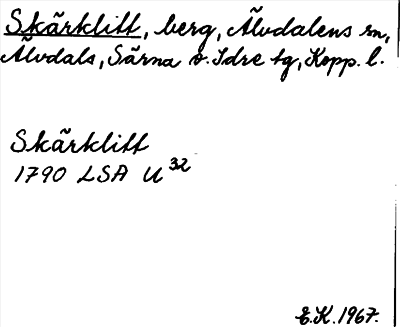 Skärklitt, berg, Älvdalens sn,
Älvdals, Särna o. Idre tg, Kopp. l.
Skärklitt
1790 LSA U 32
E.K. 1967.